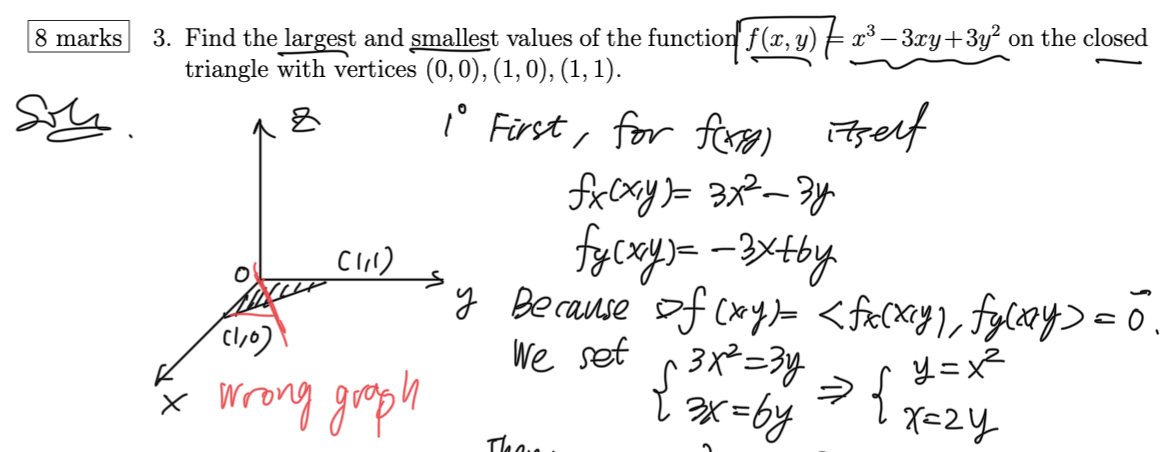 8 marks 3. Find the largest and smallest values of the function f(x, y) = x³ − 3xy + 3y² on the closed
triangle with vertices (0, 0), (1, 0), (1, 1).
Soln.
z
1° First, for f(x,y) itself
fx(x,y) = 3x² − 3y
fy(x,y) = −3x+6y
O
(1,1)
y
(1,0)
x
wrong graph
Because ∇f(x,y) = <fx(x,y), fy(x,y)> = 0⃗.
We set { 3x² = 3y ⇒ { y = x²
3x = 6y x = 2y
Then